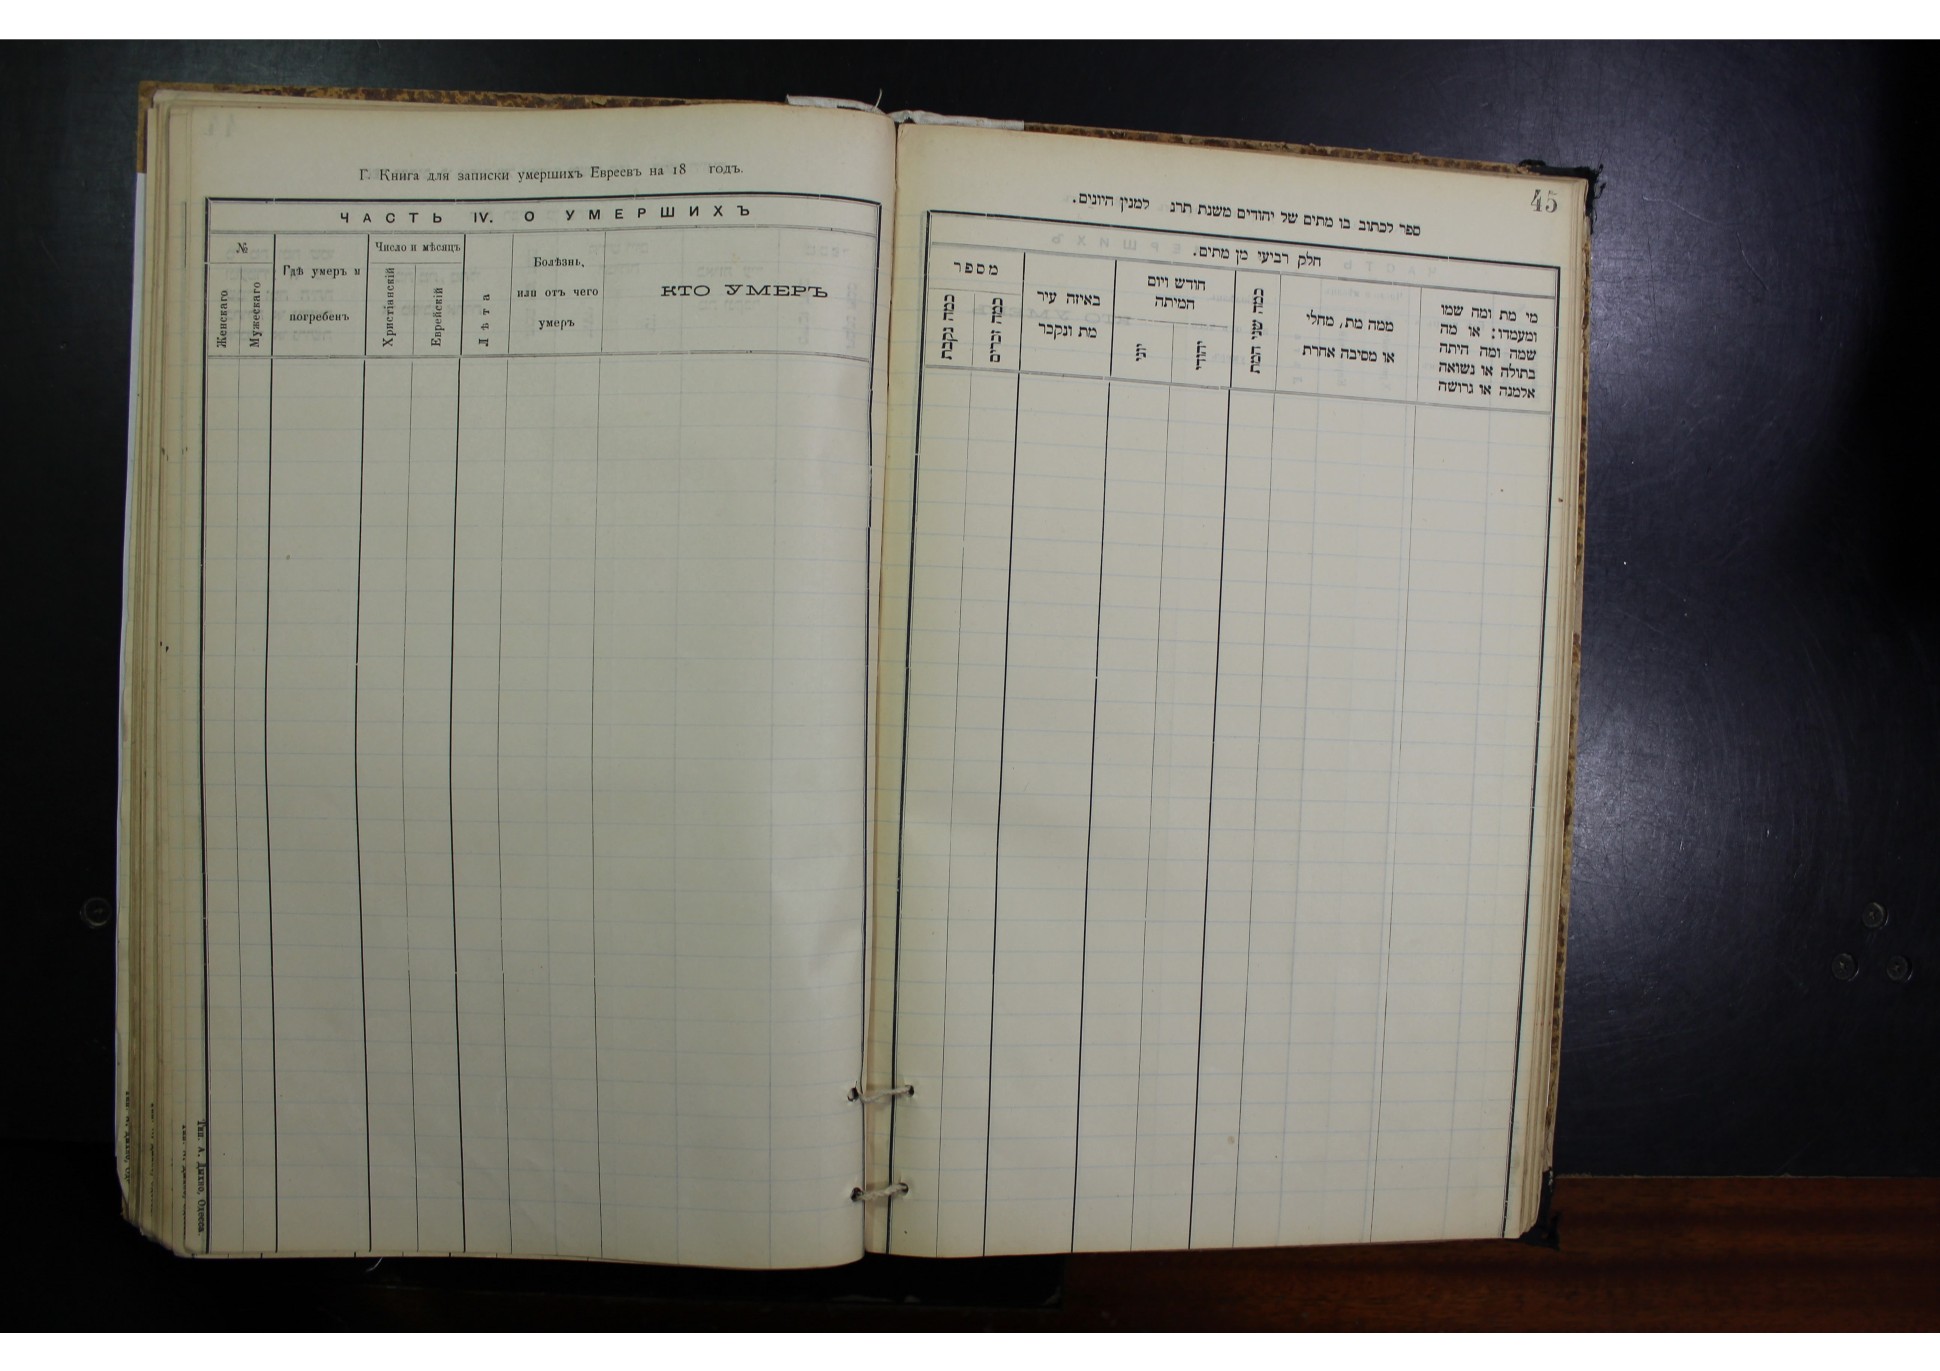 Г. Книга для записки умершихъ Евреевъ на 18 годъ.
ЧАСТЬ IV. О УМЕРШИХЪ
№
Женскаго
Мужескаго
Гдѣ умеръ и
погребенъ
Число и мѣсяцъ
Христіанскій
Еврейскій
Лѣта
Болѣзнь,
или отъ чего
умеръ
КТО УМЕРЪ
Тип. А. Дыхно, Одесса.
45
ספר לכתוב בו מתים של יהודים משנת תרנ למנין היונים.
חלק רביעי מן מתים.
מספר
כמה נקבת
כמה זכרים
באיזה עיר
מת ונקבר
חודש ויום
המיתה
יוני
יהודי
כמה שני המת
ממה מת, מחלי
או מסיבה אחרת
מי מת ומה שמו
ומעמדו: או מה
שמה ומה היתה
בתולה או נשואה
אלמנה או גרושה